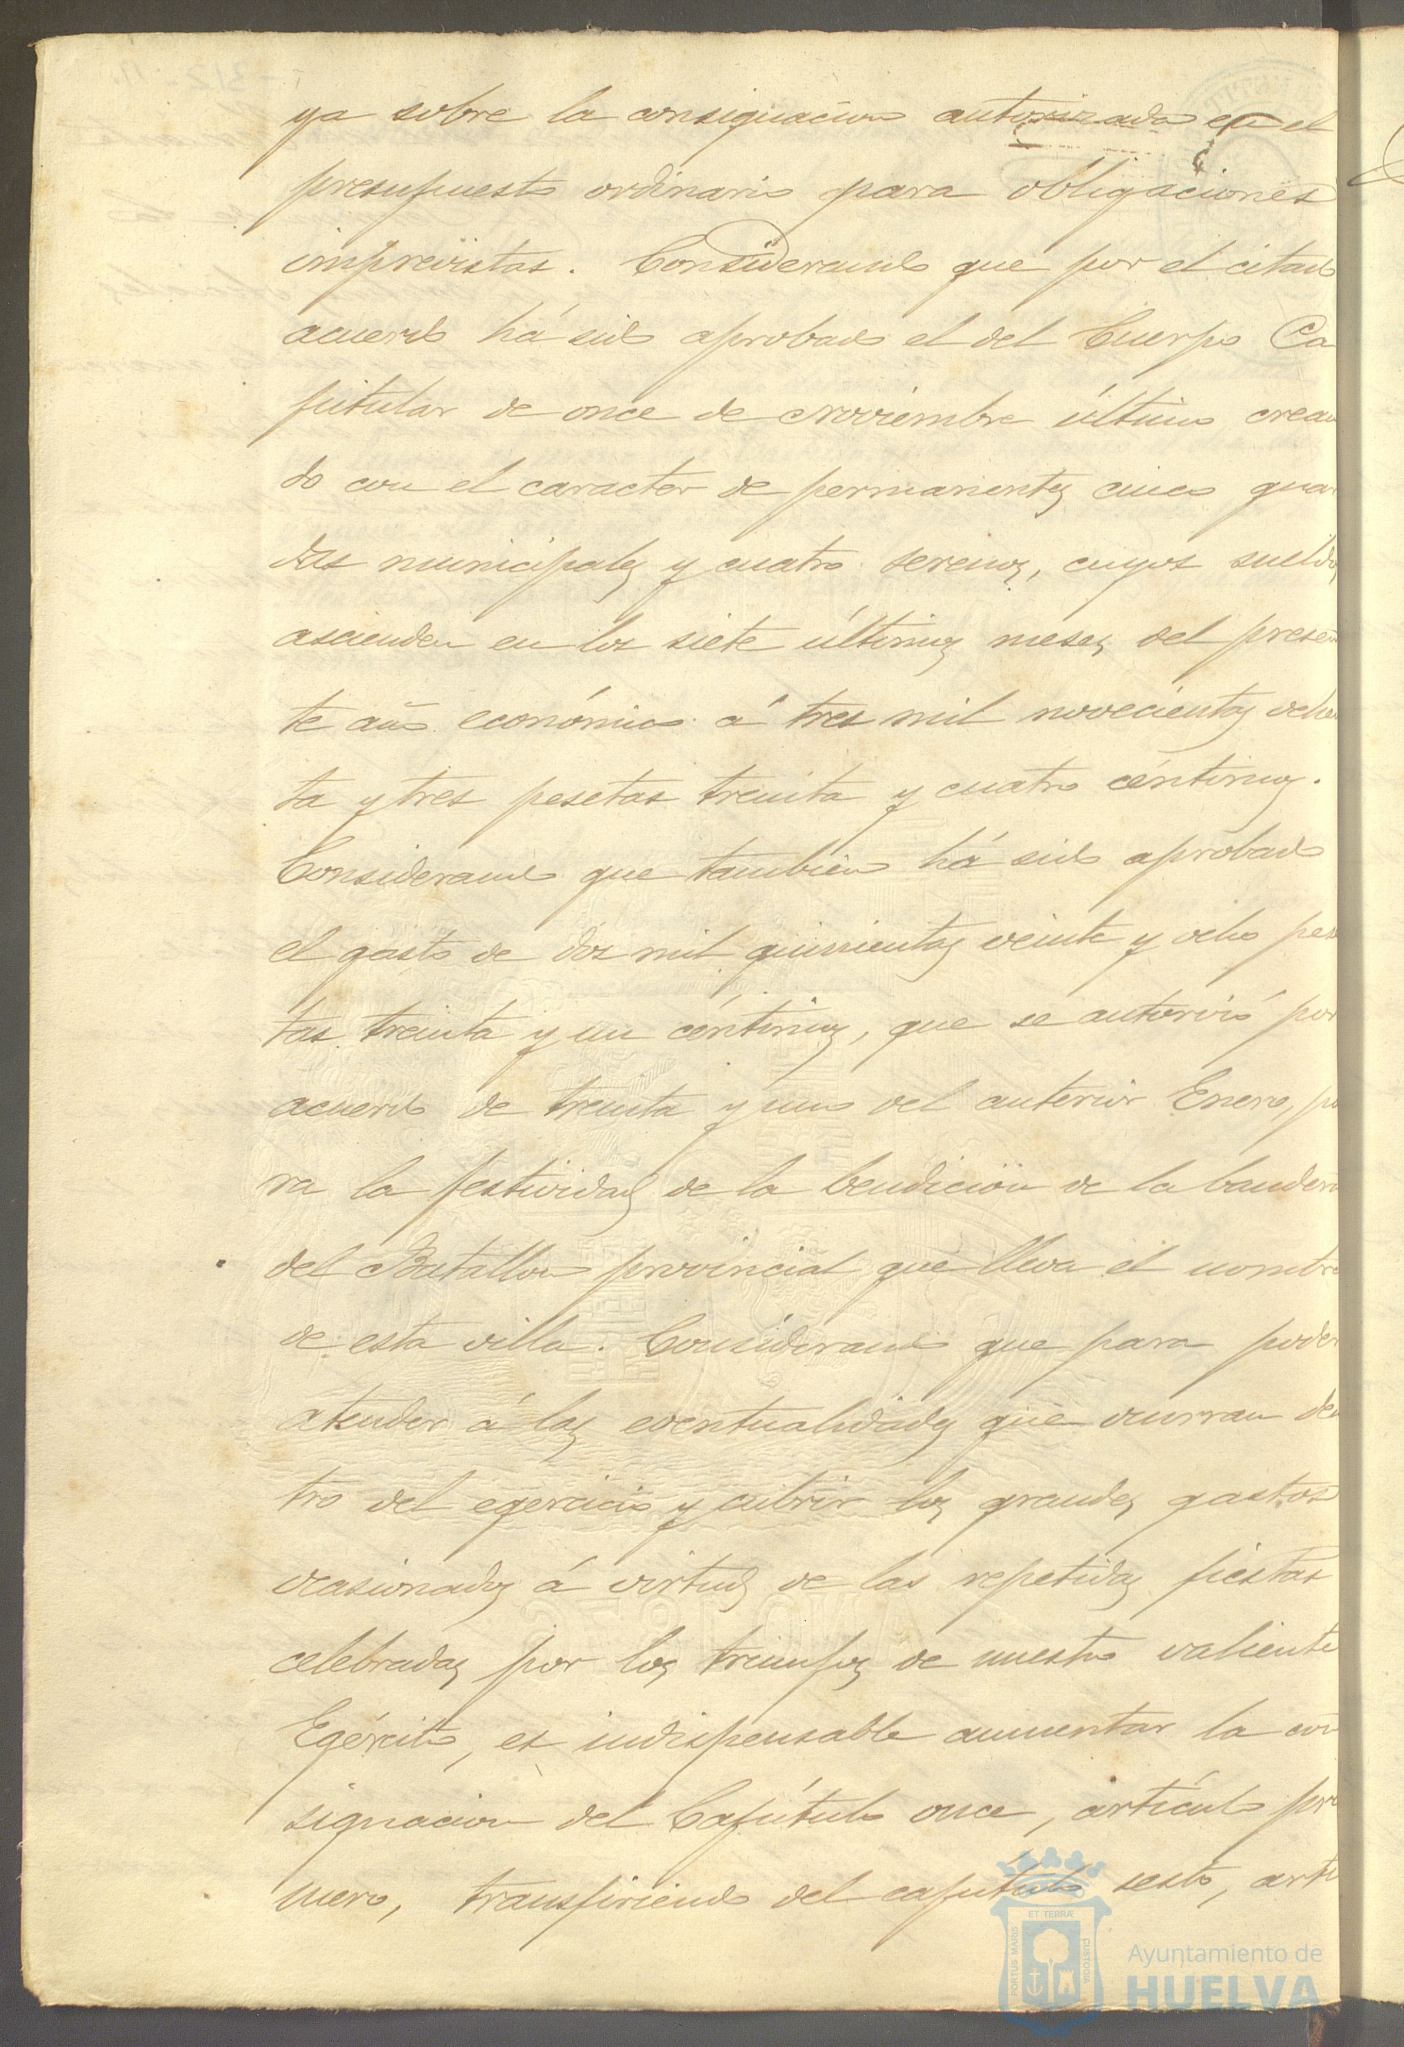 ya sobre la consignacion autorizada en el
presupuesto ordinario para obligaciones
imprevistas. Considerando que por el citado
acuerdo há sido aprobado el del Cuerpo Ca
pitular de once de Noviembre último crean
do con el caracter de permanentes cinco guar
dias municipales y cuatro serenos, cuyos sueldos
ascienden en los siete últimos meses del presen
te año económico á tres mil novecientas ochen
ta y tres pesetas treinta y cuatro céntimos.
Considerando que tambien há sido aprobado
el gasto de dos mil quinientas veinte y ocho pese
tas treinta y un céntimos, que se autorizó por
acuerdo de treinta y uno del anterior Enero, pa
ra la festividad de la bendicion de la bandera
del Batallon provincial que lleva el nombre
de esta villa. Considerando que para poder
atender á las eventualidades que ocurran den
tro del egercicio y cubrir los grandes gastos
ocasionados á virtud de las repetidas fiestas
celebradas por los triunfos de nuestro valiente
Egército, es indispensable aumentar la con
signacion del Capítulo once, artículo pri
mero, transfiriendo del capítulo sesto, artí
PORTUS MARIS
ET TERRÆ
CUSTODIA
Ayuntamiento de
HUELVA